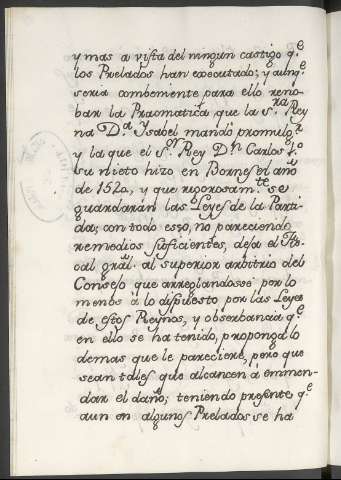 y mas a vista del ningun castigo q.e
los Prelados han executado; y aunq.e
seria combeniente para ello reno-
bar la Pracmatica que la s.ra Rey
na D.a Ysabel mandó promulg.r
y la que el s.or Rey D.n Carlos 1.o
su nieto hizo en Borns el año
de 1520, y que rigorosam.te se
guardarán las Leyes de la Parti-
da; con todo esso, no pareciendo
remedios suficientes, deja el Fis-
cal gral. al superior arbitrio del
Consejo que arreglandosse por lo
menos à lo dispuesto por las Leyes
de estos Reynos, y obserbancia q.e
en ello se ha tenido, proponga lo
demas que le pareciere, pero que
sean tales que alcancen á emmen-
dar el daño; teniendo presente q.e
aun en algunos Prelados se ha